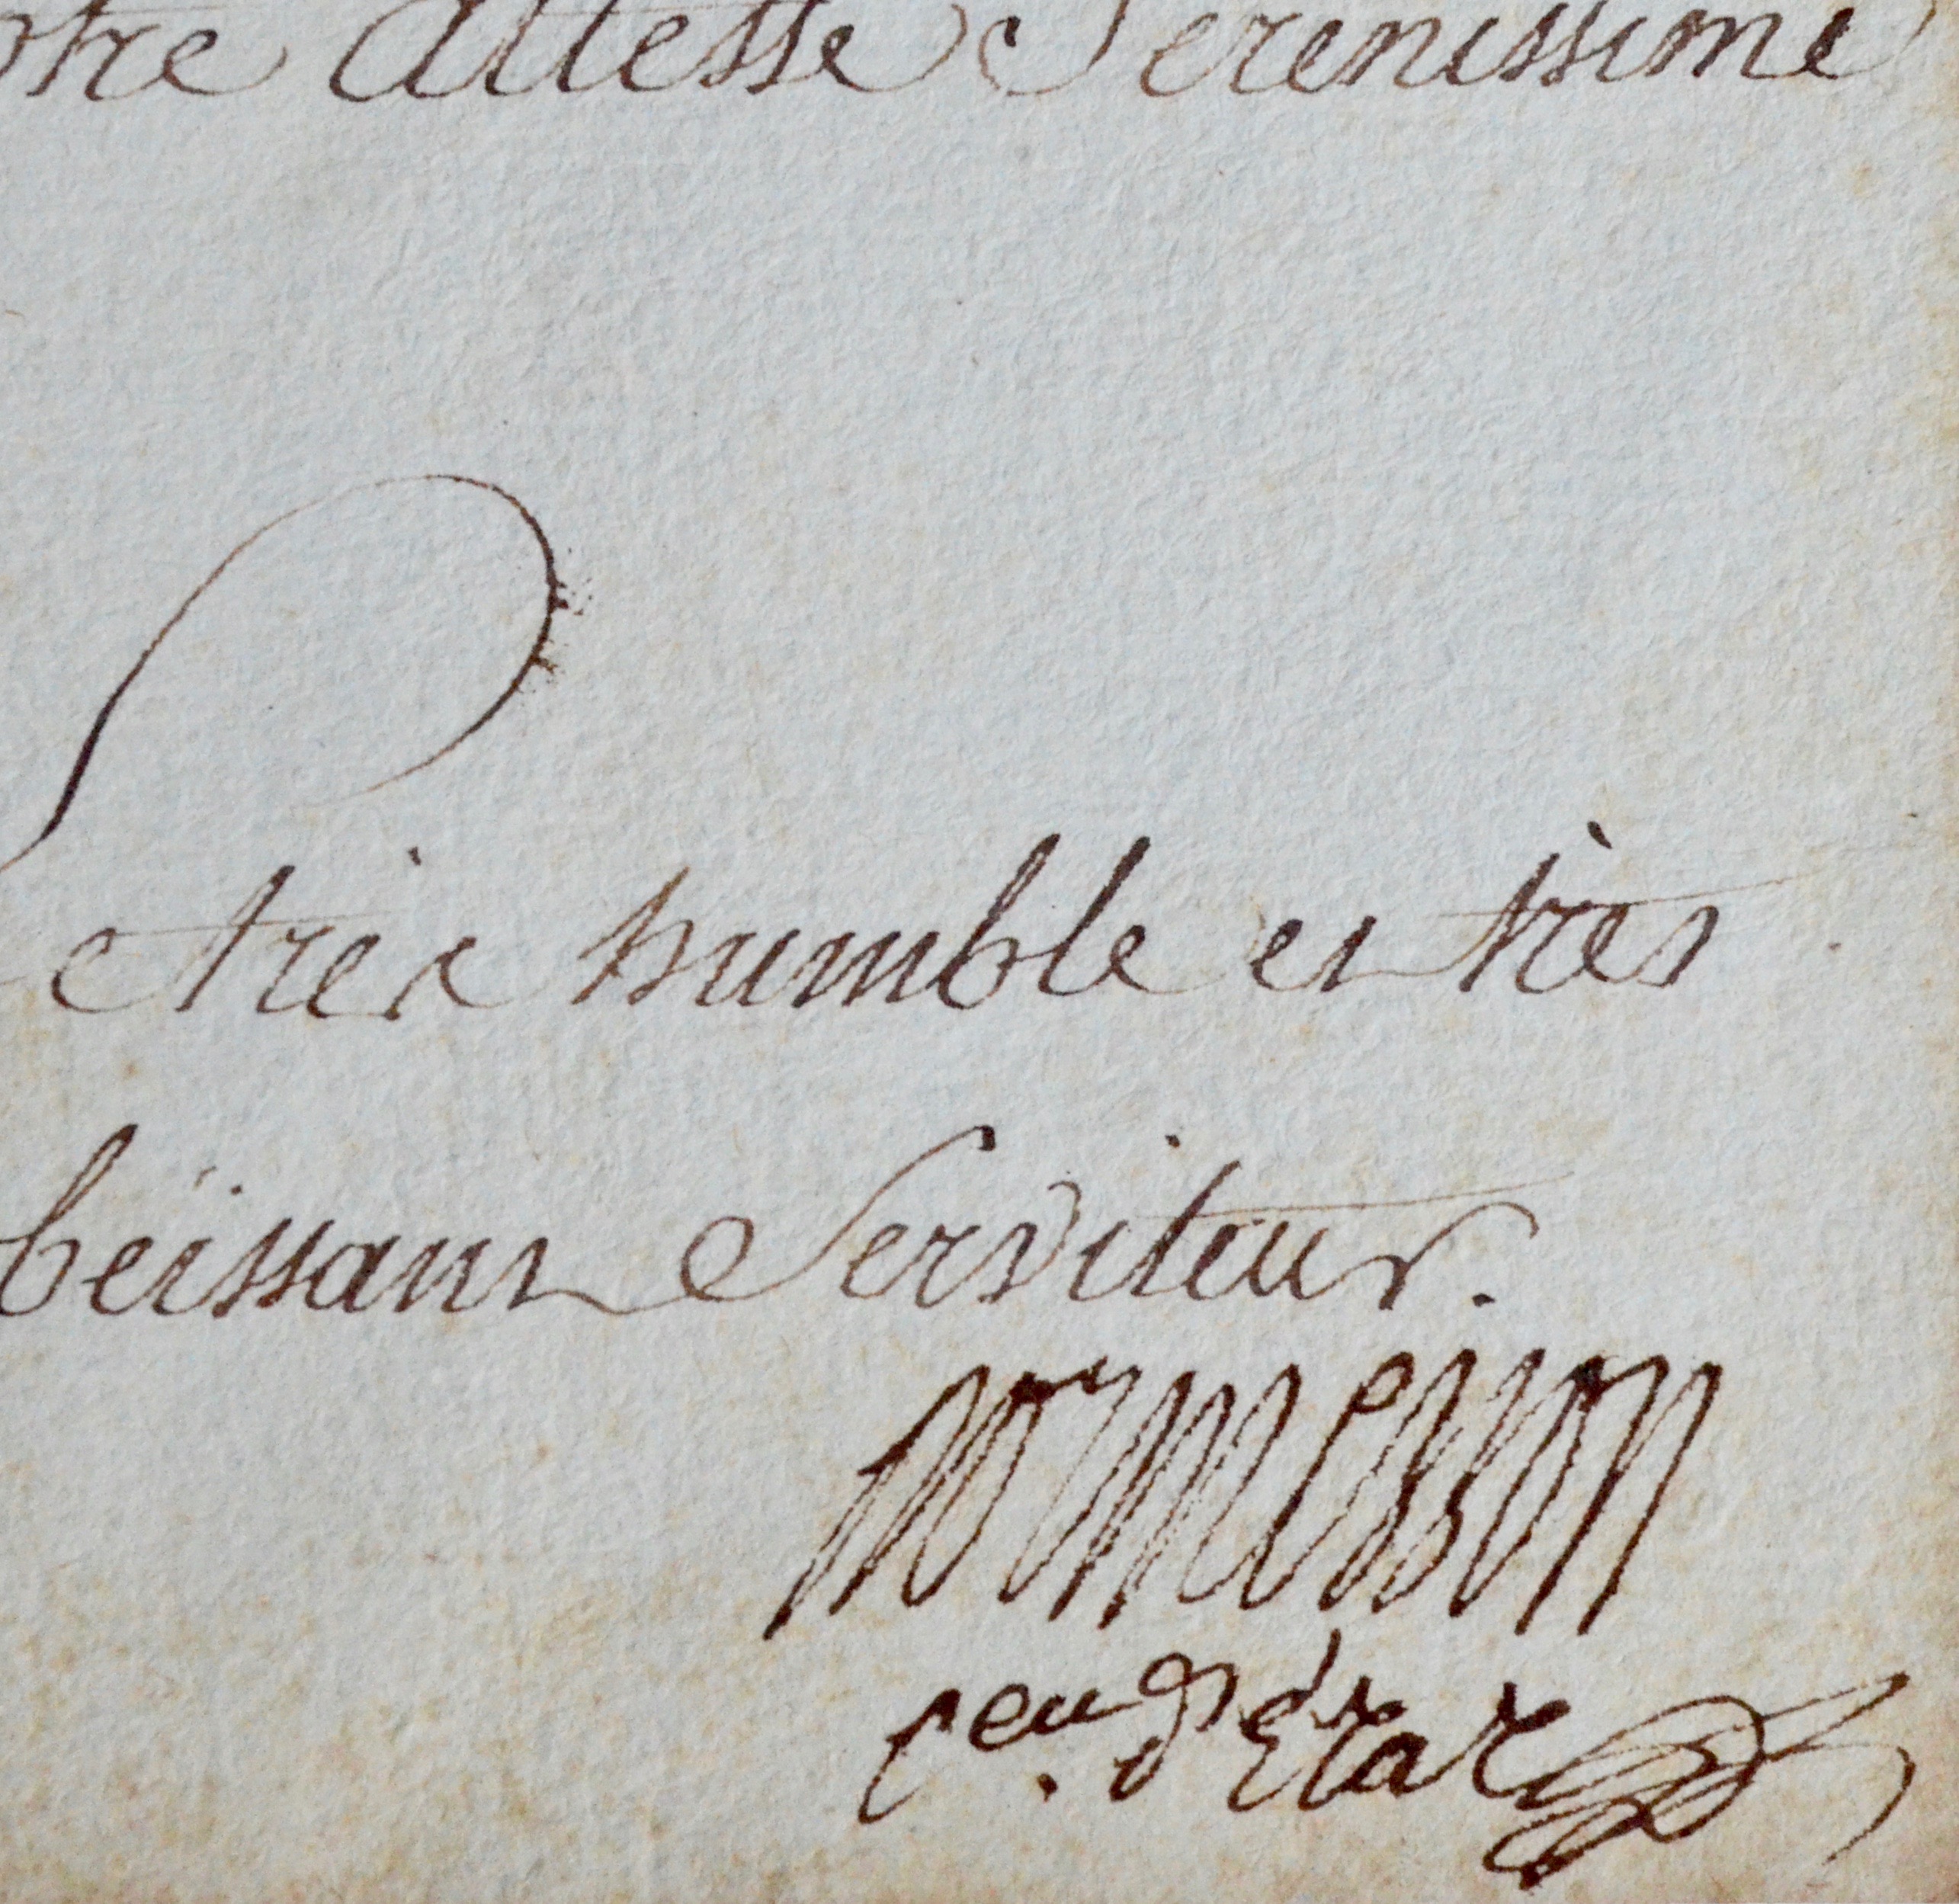 otre Altesse Serenissime
Le très humble et très
béissant Serviteur.
normesson
Cer. d'Etat